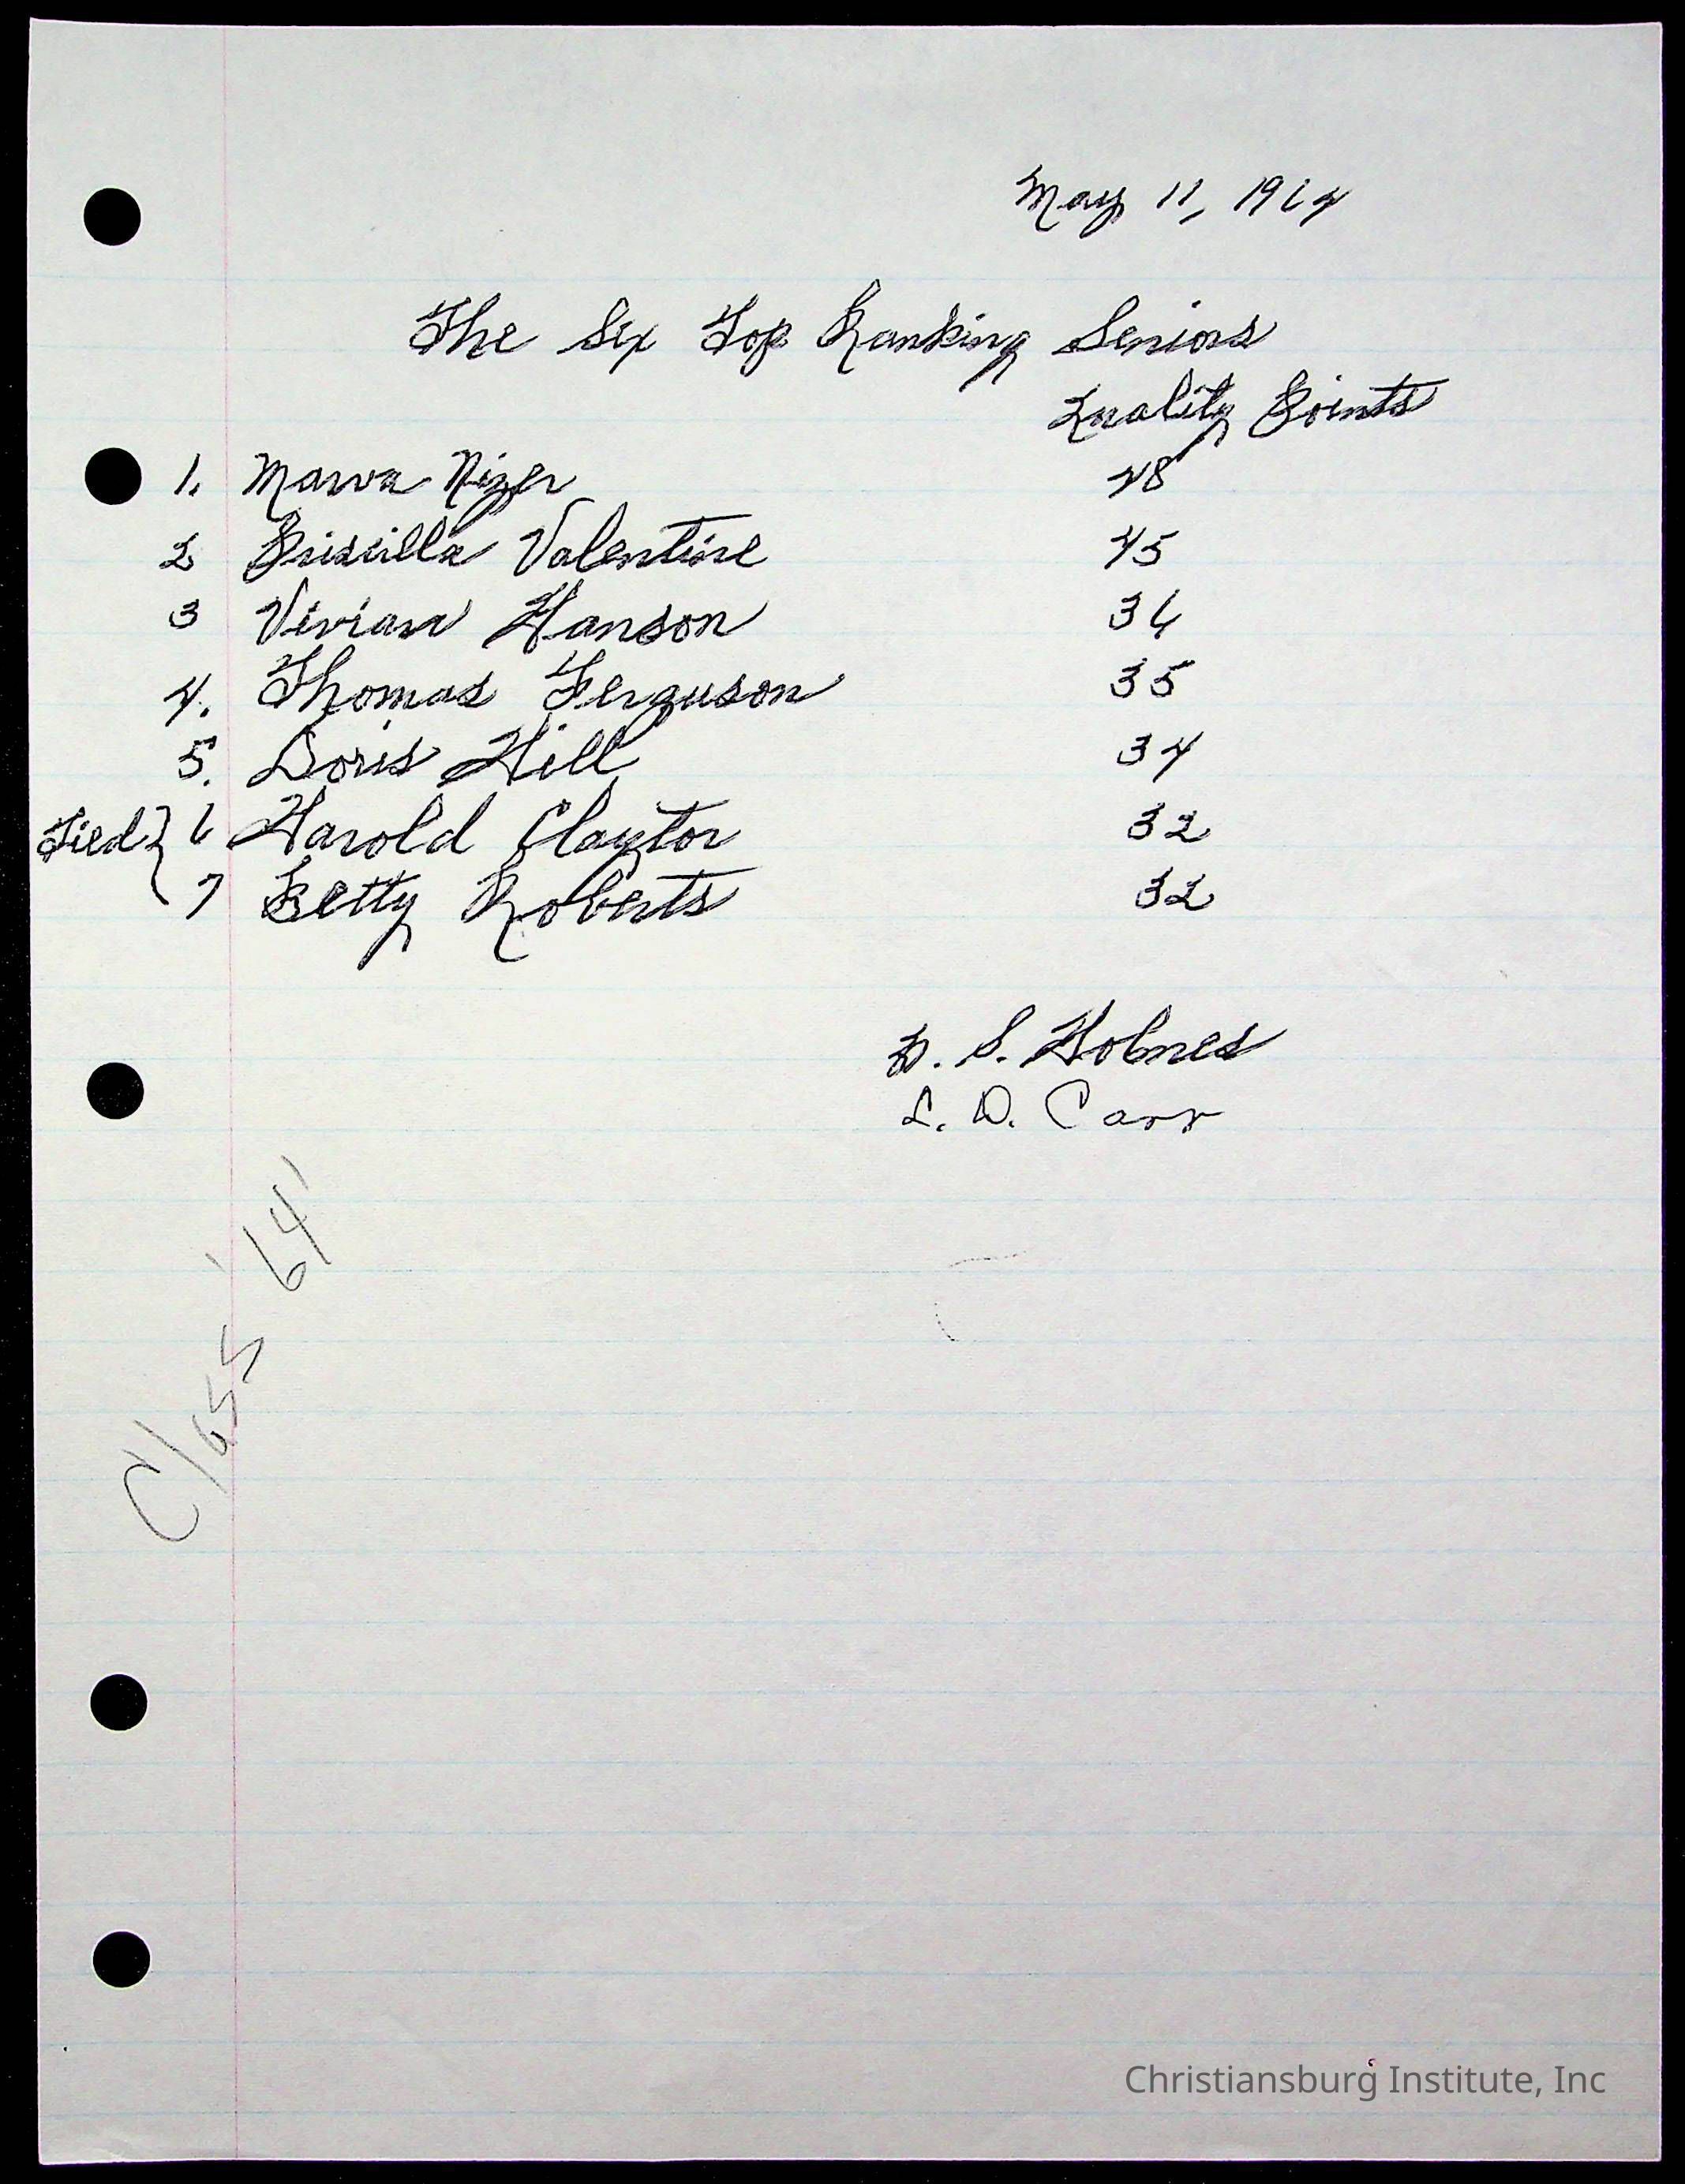 May 11, 1964
The Six Top Ranking Seniors
Quality Points
1. Marva Nizer 48
2 Priscilla Valentine 45
3 Vivian Hanson 36
4. Thomas Ferguson 35
5. Doris Hill 34
Tied { 6 Harold Claytor 32
7 Betty Roberts 32
D. S. Holmes
L. D. Carr
Class '64'
Christiansburg Institute, Inc